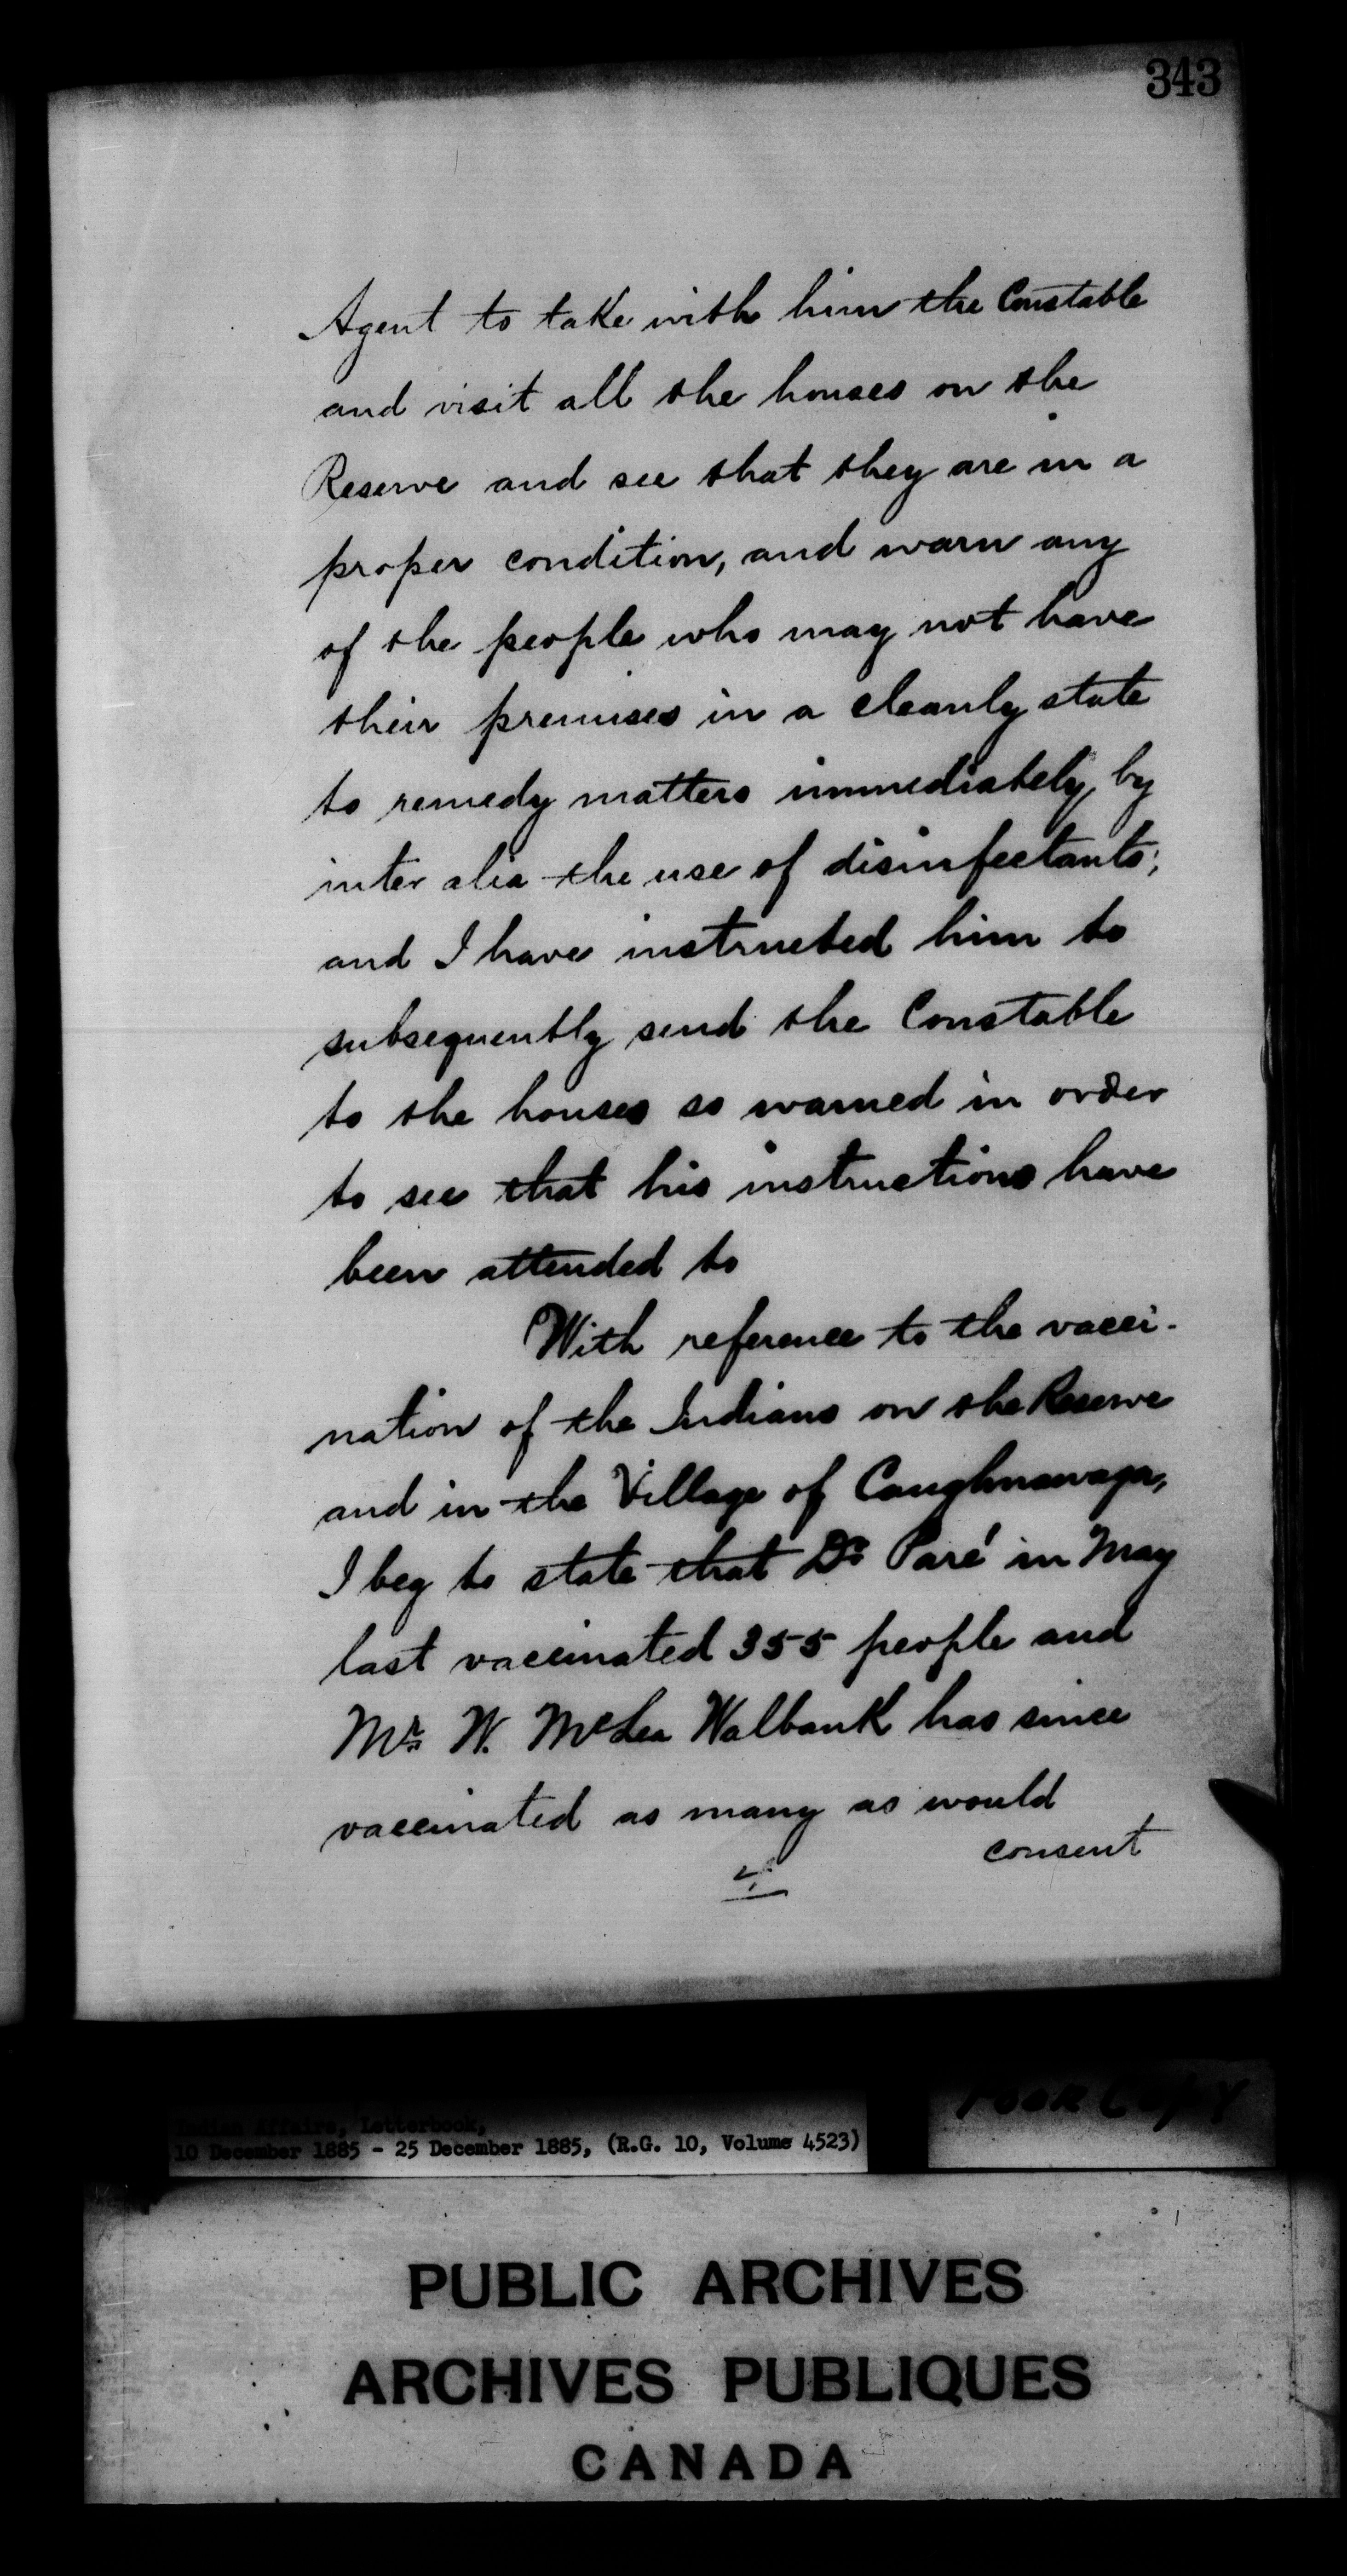 343
Agent to take with him the Constable
and visit all the houses on the
Reserve and see that they are in a
proper condition, and warn any
of the people who may not have
their premises in a cleanly state
to remedy matters immediately, by
inter alia the use of disinfectants;
and I have instructed him to
subsequently send the Constable
to the houses so warned in order
to see that his instructions have
been attended to
With reference to the vacci-
nation of the Indians on the Reserve
and in the Village of Caughnawaga,
I beg to state that Dr. Paré in May
last vaccinated 355 people and
Mr. W. McLea Walbank has since
vaccinated as many as would
consent
Indian Affairs, Letterbook,
10 December 1885 - 25 December 1885, (R.G. 10, Volume 4523)
POOR COPY
PUBLIC ARCHIVES
ARCHIVES PUBLIQUES
CANADA